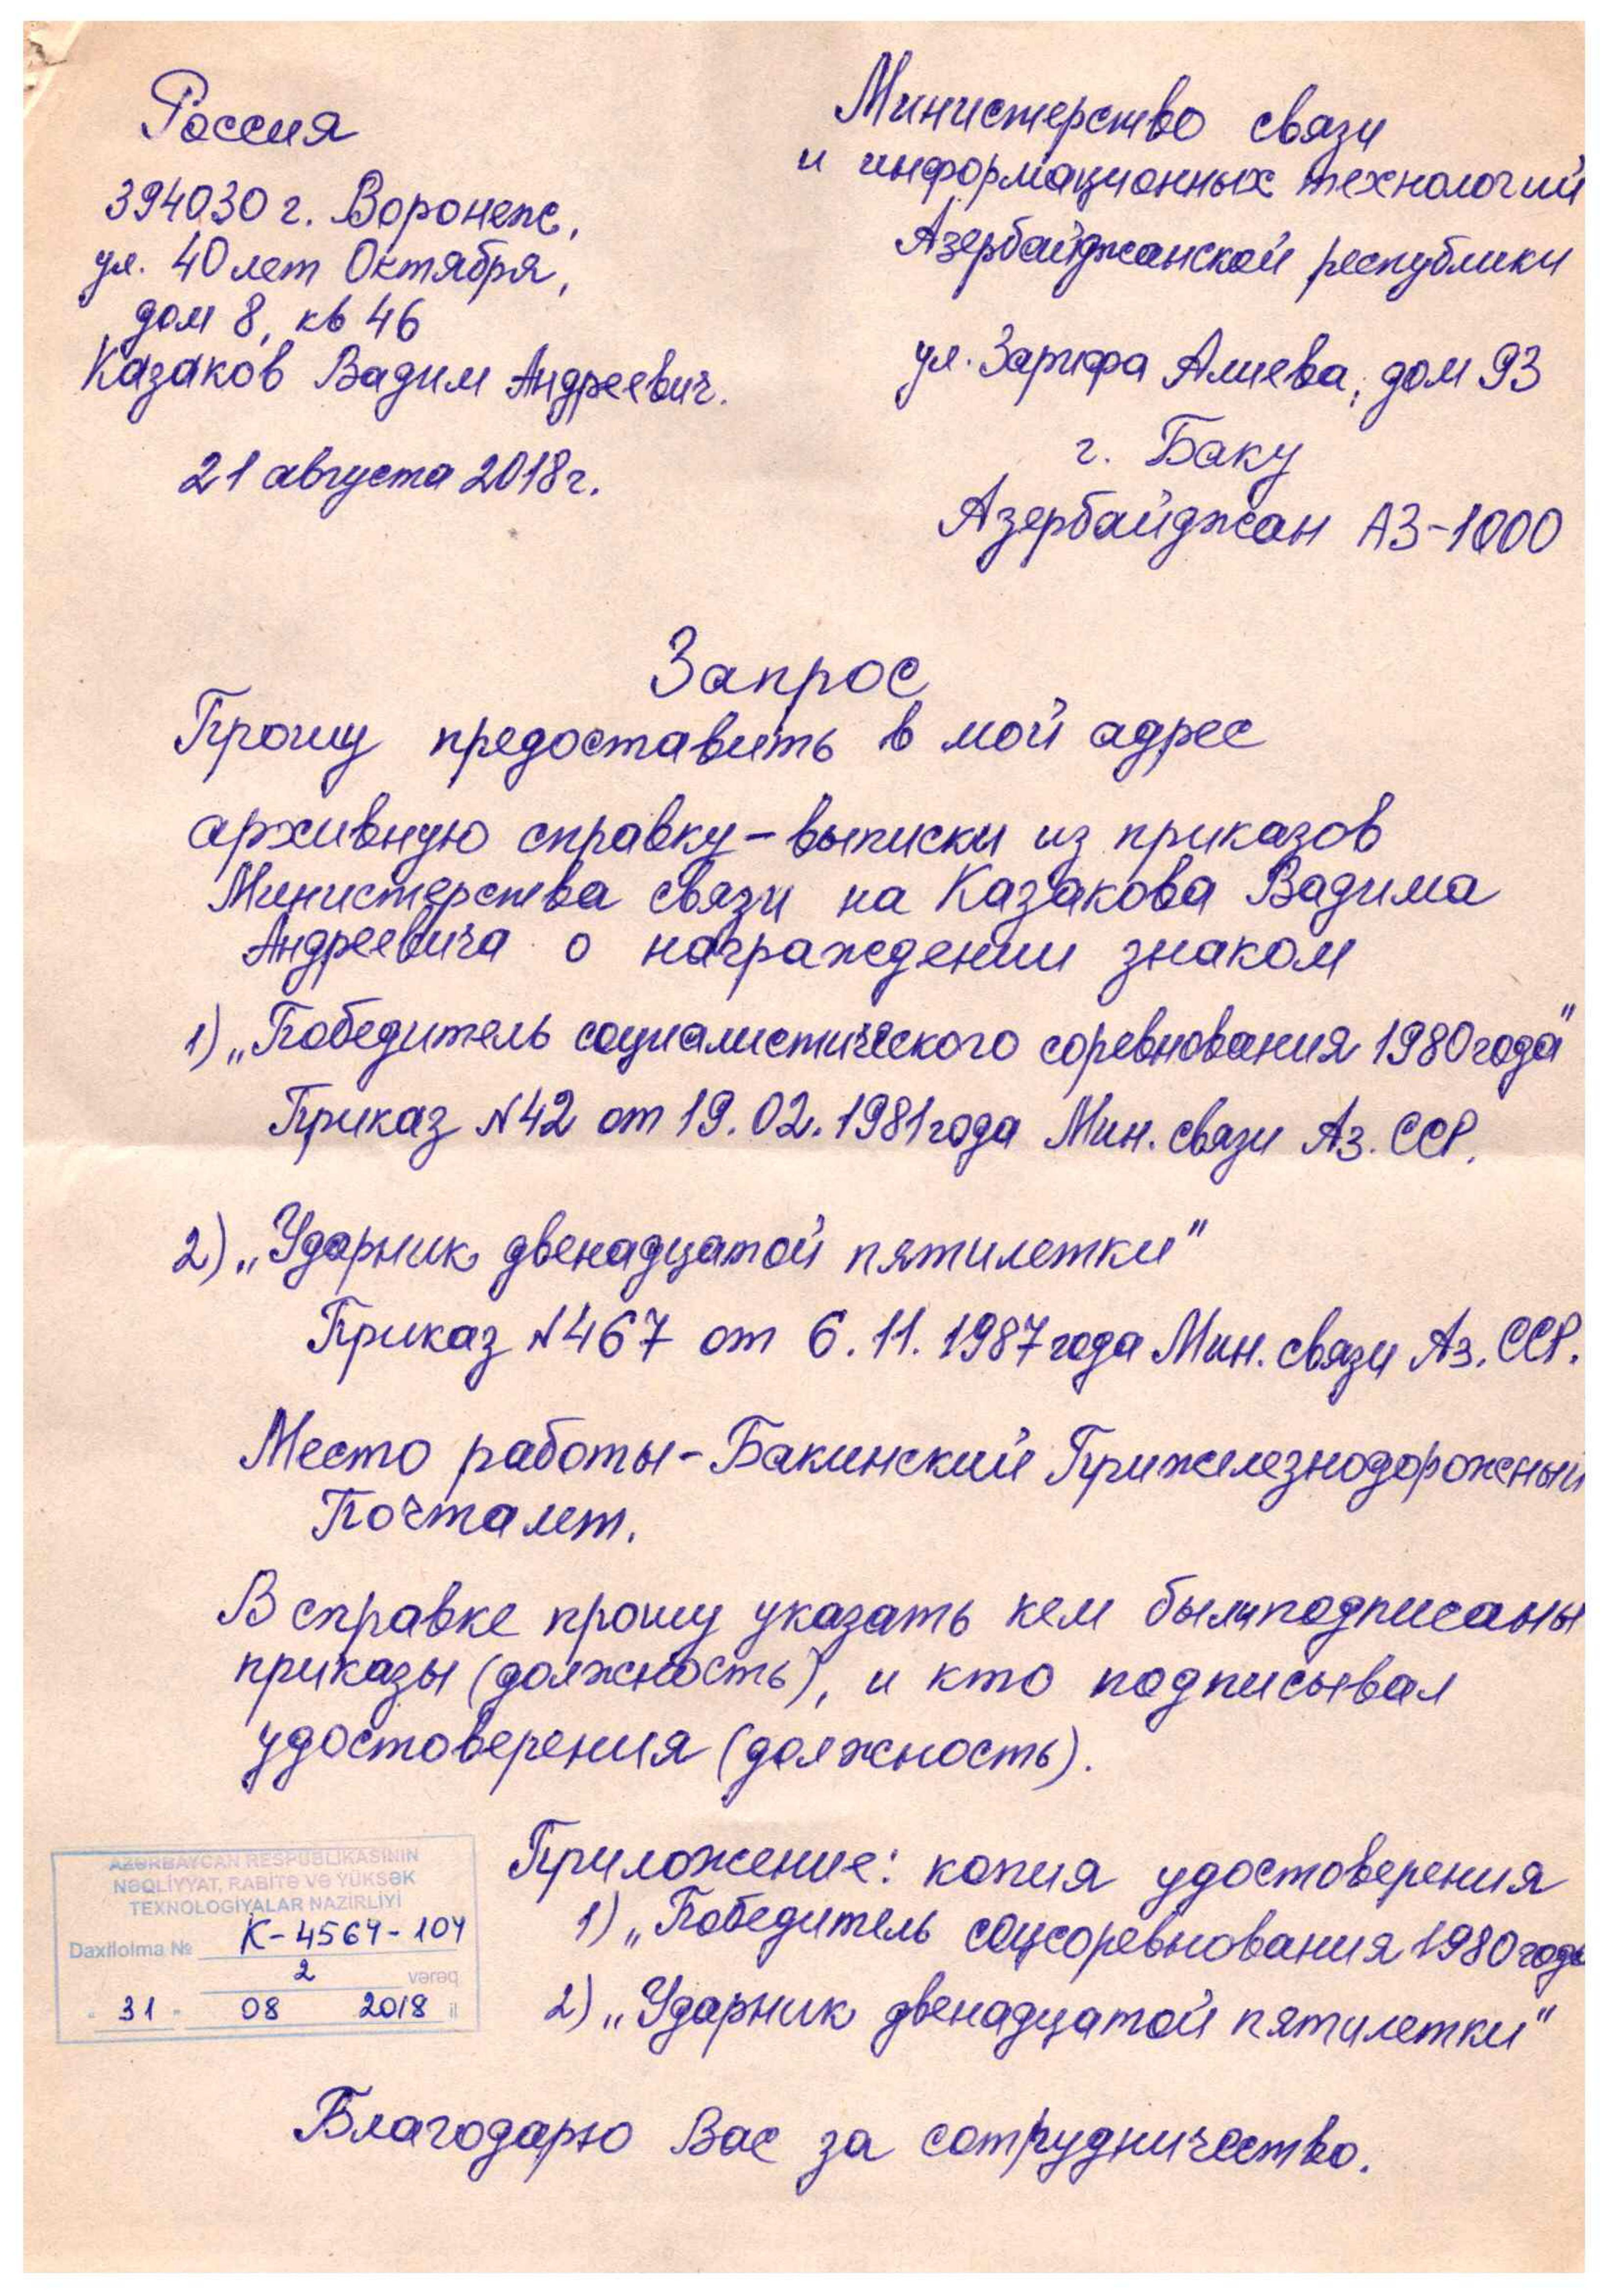 Россия
394030 г. Воронеж,
ул. 40 лет Октября,
дом 8, кв 46
Казаков Вадим Андреевич.
21 августа 2018г.
Министерство связи
и информационных технологий
Азербайджанской республики
ул. Зарифа Алиева, дом 93
г. Баку
Азербайджан АЗ-1000
Запрос
Прошу предоставить в мой адрес
архивную справку - выписки из приказов
Министерства связи на Казакова Вадима
Андреевича о награждении знаком
1) „Победитель социалистического соревнования 1980 года"
Приказ №42 от 19.02.1981 года Мин. связи Аз. ССР.
2) „Ударник двенадцатой пятилетки"
Приказ №467 от 6.11.1987 года Мин. связи Аз. ССР.
Место работы - Бакинский Прижелезнодорожный
Почтамт.
В справке прошу указать кем были подписаны
приказы (должность), и кто подписывал
удостоверения (должность).
Приложение: копия удостоверения
1) „Победитель соцсоревнования 1980 года
2) „Ударник двенадцатой пятилетки"
AZƏRBAYCAN RESPUBLİKASININ
NƏQLİYYAT, RABİTƏ VƏ YÜKSƏK
TEXNOLOGİYALAR NAZİRLİYİ
Daxilolma № K-4564-104
2 vərəq
" 31 " 08 2018 il
Благодарю Вас за сотрудничество.